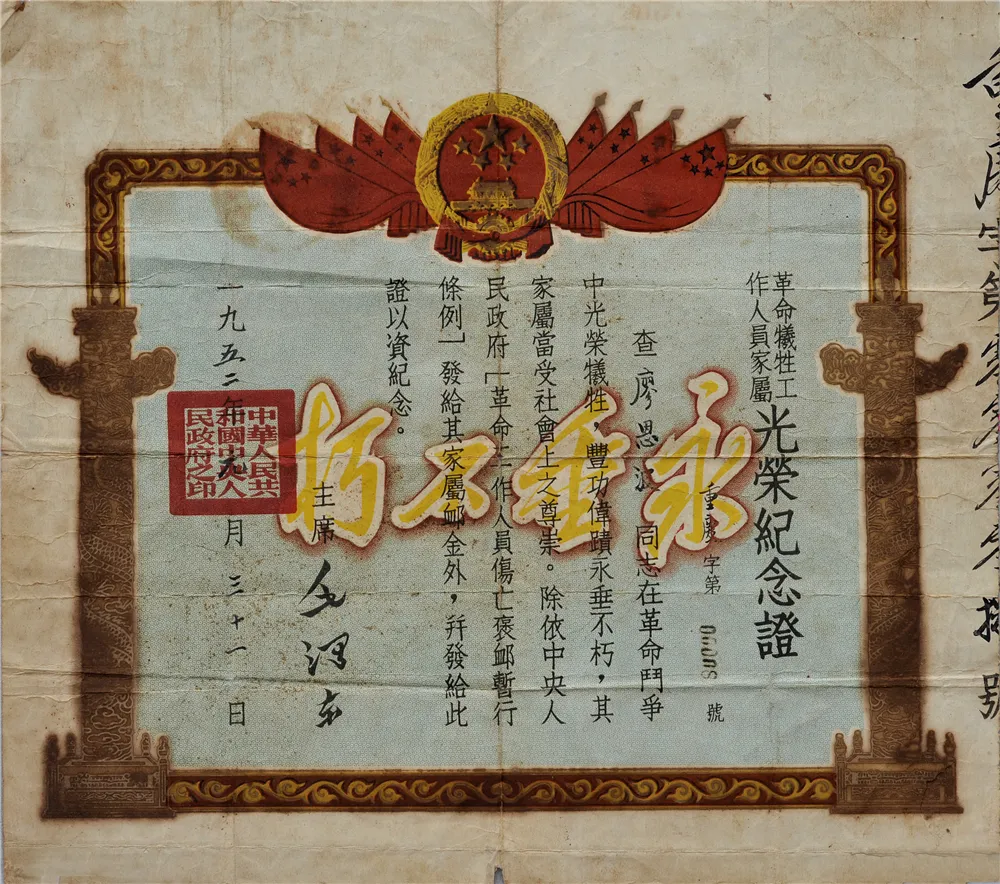 字第 號
革命犧牲工
作人員家屬
光榮紀念證
重慶字第 號
查廖思 同志在革命鬥爭
中光榮犧牲，豐功偉蹟永垂不朽，其
家屬當受社會上之尊崇。除依中央人
民政府「革命工作人員傷亡褒卹暫行
條例」發給其家屬卹金外，幷發給此
證以資紀念。
永垂不朽
主席 毛澤東
一九五二年元月三十一日
中華人民共
和國中央人
民政府之印